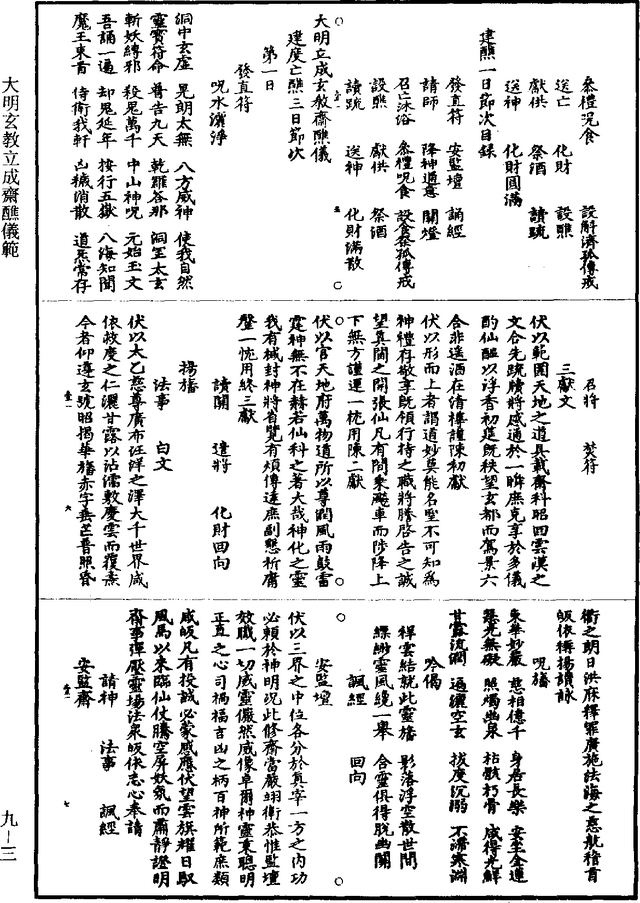 大明玄教立成齋醮儀範
叅禮況食　設斛濟孤傳戒
送亡　化財　設醮
獻供　祭酒　讀䟽
送神　化財圓滿
建醮一日節次目錄
發直符　安監壇　誦經
請師　降神通意　關燈
召亡沐浴　叅禮呪食　設食祭孤傳戒
設醮　獻供　祭酒
讀䟽　送神　化財滿散
大明立成玄教齋醮儀
建度亡醮三日節次
第一日
發直符
呪水灑淨
洞中玄虛　晃朗太無　八方威神　使我自然
靈寳符命　普告九天　乾羅荅那　洞罡太玄
斬妖縛邪　殺鬼萬千　中山神呪　元始玉文
吾誦一遍　却鬼延年　按行五嶽　八海知聞
魔王束首　侍衛我軒　凶穢消散　道炁常存
召將　焚符
三獻文
伏以範圍天地之道具載齋科昭回雲漢之
文合先䟽牘將感通於一晬庶克享於多儀
酌仙醖以浮香初筵旣秩望玄都而駕景六
合非遥洒在清樽謹陳初獻
伏以形而上者謂道妙莫能名聖不可知為
神禮存敬享旣領行持之職將騰啓告之誠
望真閽之開張仙凡有間秉飈車而陟降上
下無方謹運一梡用陳二獻
伏以官天地府萬物道所以尊潤風雨鼓雷
霆神無不在赫若仙科之著大哉神化之靈
我有椷封神將省覽有煩傳達庶副懇祈庸
罄一梡用終三獻
讀關　遣將　化財回向
揚旛
法事　白文
伏以太乙慈尊廣布汪洋之澤大千世界咸
依救度之仁灑甘露以沾濡敷慶雲而覆燾
今者仰遵玄號昭揭華旛赤字垂芒普照昏
衢之朝日洪麻釋罪廣施法海之慈航稽首
皈依稱揚讃詠
呪旛
東華妙嚴　慈相億千　身居長樂　安坐金蓮
慧光無礙　照燭幽泉　枯骸朽骨　咸得光鮮
甘露流潤　遍灑空玄　拔度沉溺　不滯寒淵
吟偈
祥雲結就此靈旛　影落浮空散世間
縹緲靈風纔一舉　合靈俱得脫幽關
諷經　回向
安監壇
伏以三界之中位各分於真宰一方之內功
必賴於神明況此修齋當嚴翊衛恭惟監壇
效職一切威靈儼然威像卓爾神靈秉聰明
正直之心司禍福吉凶之柄百神所範庶類
咸皈凡有投誠必蒙感應伏望雲旗耀日馭
風馬以來臨仙仗騰空屏妖氛而肅靜證明
齋事彈壓靈場法衆皈依志心奉請
請神　法事　諷經
安監齋
九－三